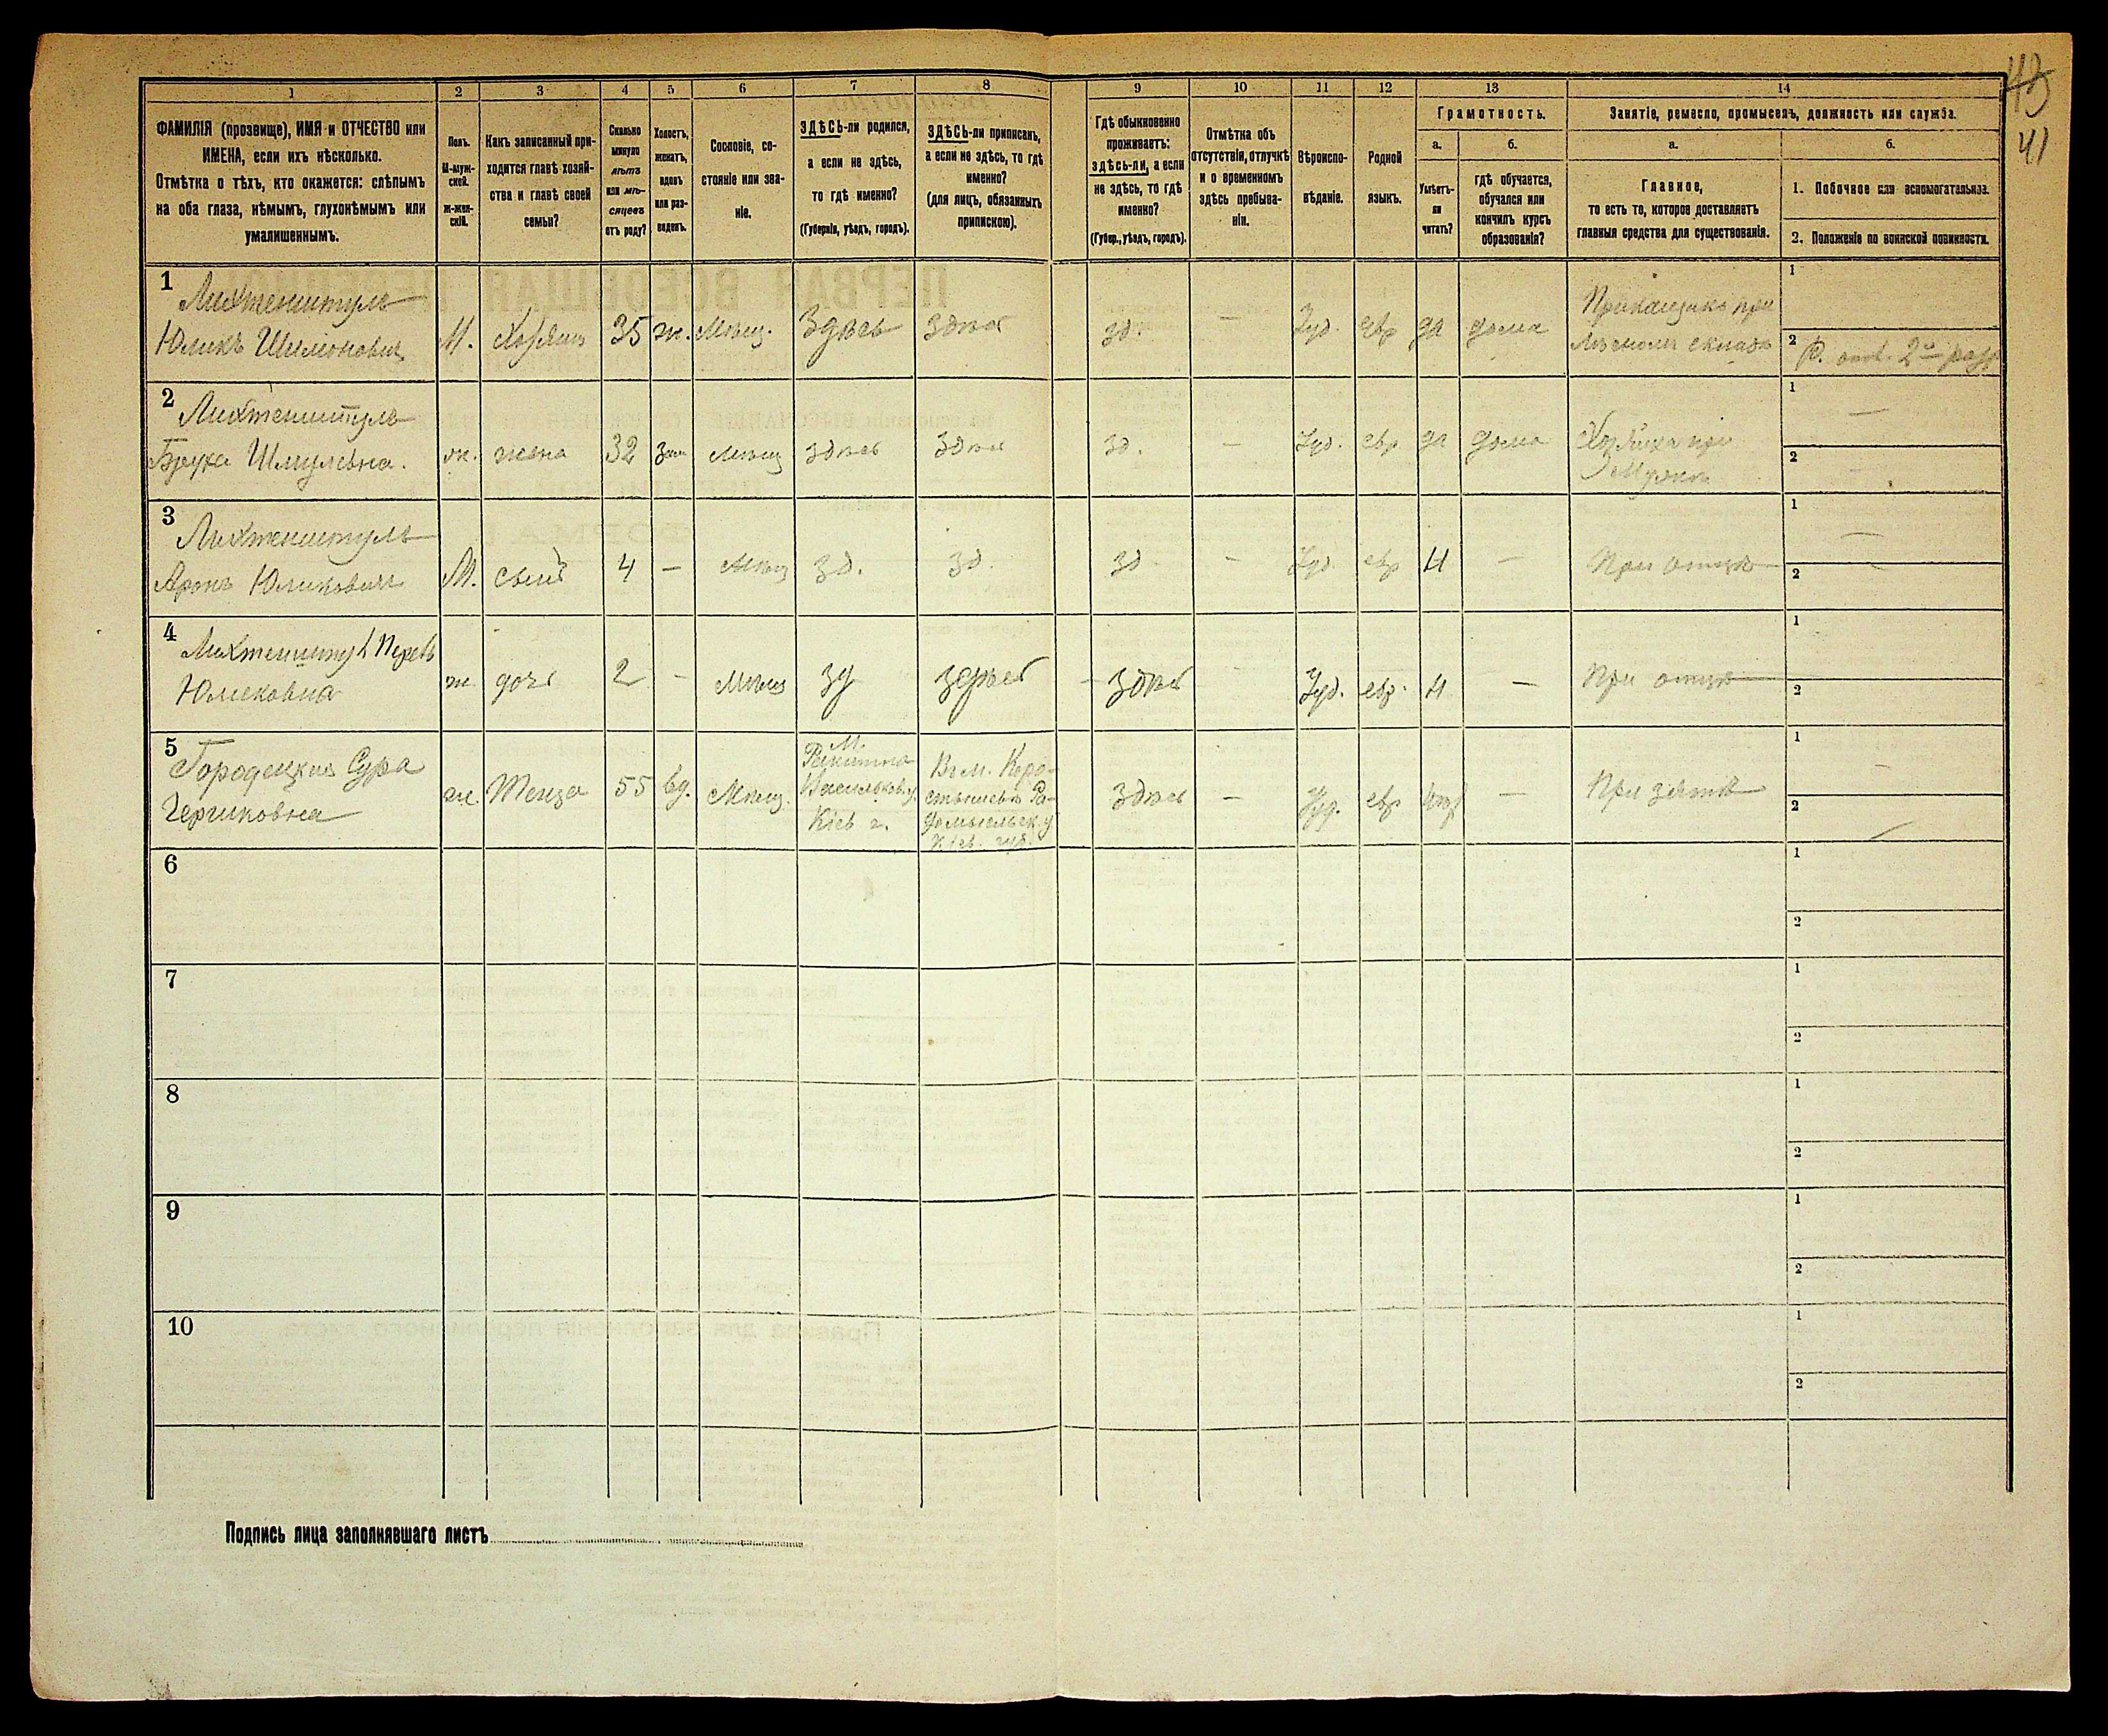 43
41
1
2
3
4
5
6
7
8
9
10
11
12
13
14
ФАМИЛІЯ (прозвище), ИМЯ и ОТЧЕСТВО или
ИМЕНА, если ихъ нѣсколько.
Отмѣтка о тѣхъ, кто окажется: слѣпымъ
на оба глаза, нѣмымъ, глухонѣмымъ или
умалишеннымъ.
Полъ.
М-муж-
ской.
ж-жен-
скій.
Какъ записанный при-
ходится главѣ хозяй-
ства и главѣ своей
семьи?
Сколько
минуло
лѣтъ
или мѣ-
сяцевъ
отъ роду?
Холостъ,
женатъ,
вдовъ
или раз-
веденъ.
Сословіе, со-
стояніе или зва-
ніе.
ЗДѢСЬ-ли родился,
а если не здѣсь,
то гдѣ именно?
(Губернія, уѣздъ, городъ).
ЗДѢСЬ-ли приписанъ,
а если не здѣсь, то гдѣ
именно?
(для лицъ, обязанныхъ
припискою).
Гдѣ обыкновенно
проживаетъ:
здѣсь-ли, а если
не здѣсь, то гдѣ
именно?
(Губер., уѣздъ, городъ).
Отмѣтка объ
отсутствіи, отлучкѣ
и о временномъ
здѣсь пребыва-
ніи.
Вѣроиспо-
вѣданіе.
Родной
языкъ.
Грамотность.
а.
Умѣетъ-
ли
читать?
б.
гдѣ обучается,
обучался или
кончилъ курсъ
образованія?
Занятіе, ремесло, промыселъ, должность или служба.
а.
Главное,
то есть то, которое доставляетъ
главныя средства для существованія.
б.
1. Побочное или вспомогательное.
2. Положеніе по воинской повинности.
1
Лихтенштуль
Юликъ Шимоновичъ
М.
Хозяинъ
35
ж.
Мѣщ.
Здѣсь
Здѣсь
зд.
—
Іуд.
евр
да
дома
Приказщикъ при
лѣсномъ складѣ
1
2
2го разр
2
Лихтенштуль
Бруха Шмулевна.
ж.
жена
32
Зам
Мѣщ
здѣсь
Здѣсь
зд.
—
Іуд.
евр
да
дома
Хозяйка при
Мужѣ
1
—
2
—
3
Лихтенштуль
Аронъ Юликовичъ
М.
сынъ
4
—
Мѣщ
зд.
зд.
зд
—
Іуд.
евр
Н
—
При отцѣ
1
—
2
4
Лихтенштул
Юликовна
ж.
дочь
2
-
Мѣщ
зд
здѣсь
здѣсь
Іуд.
евр.
Н
—
При отцѣ
1
2
5
Городецкая Сура
Гершковна
ж.
Теща
55
вд.
Мѣщ.
М.
Ракитна
Васильков. у.
Кіев г.
Въ м. Коро-
стышевъ Ра-
домысльск. у
Кіев. губ.
Здѣсь
—
Іуд.
евр
—
При зятѣ
1
—
2
6
1
2
7
1
2
8
1
2
9
1
2
10
1
2
Подпись лица заполнявшаго листъ